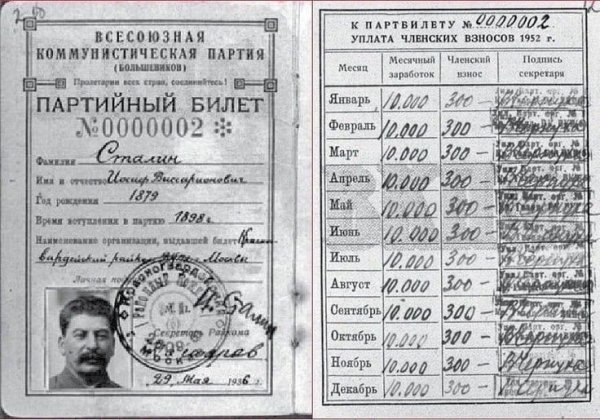 ВСЕСОЮЗНАЯ
КОММУНИСТИЧЕСКАЯ ПАРТИЯ
(БОЛЬШЕВИКОВ)
Пролетарии всех стран, соединяйтесь!
ПАРТИЙНЫЙ БИЛЕТ
№0000002
Фамилия Сталин
Имя и отчество Иосиф Виссарионович
Год рождения 1879
Время вступления в партию 1898 г.
Наименование организации, выдавшей билет Красно
гвардейский райком г. Москва
Личная
Секретарь Райкома
29 Мая 1936 г.
К ПАРТБИЛЕТУ № 0000002
УПЛАТА ЧЛЕНСКИХ ВЗНОСОВ 1952 г.
Месяц Месячный заработок Членский взнос Подпись секретаря
Январь 10.000 300 —
Февраль 10.000 300 —
Март 10.000 300 —
Апрель 10.000 300 —
Май 10.000 300 —
Июнь 10.000 300 —
Июль 10.000 300 —
Август 10.000 300 —
Сентябрь 10.000 300 —
Октябрь 10.000 300 —
Ноябрь 10.000 300 —
Декабрь 10.000 300 —